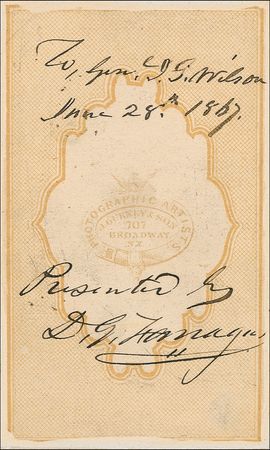 To, Gen. J. G. Wilson
June 28.th 1867.
PHOTOGRAPHIC ARTISTS
J. GURNEY & SON
707
BROADWAY.
N.Y.
Presented by
D. G. Farragut